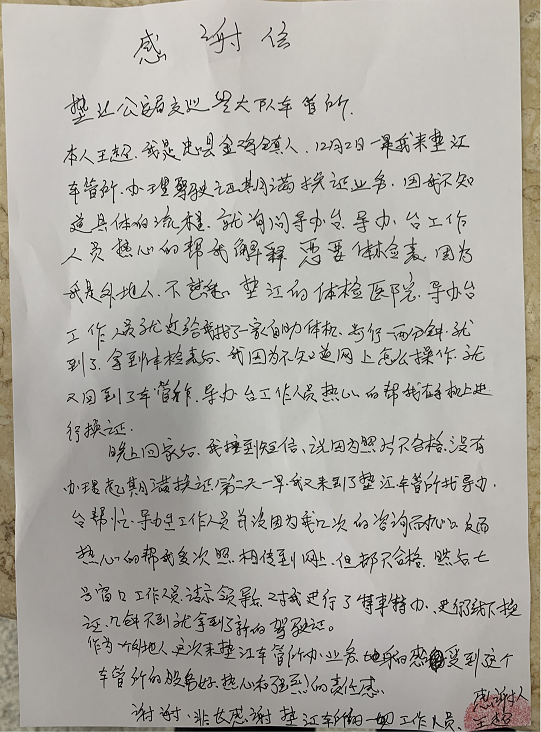 感谢信
垫江公安局交巡警大队车管所.
本人王超.我是忠县金鸡镇人.12月2日一早我来垫江
车管所.办理驾驶证期满换证业务.因我不知
道具体的流程.就询问导办台.导办台工作
人员热心的帮我解释需要体检表.因为
我是外地人.不熟悉垫江的体检医院.导办台
工作人员就给我找了一家自助体机.步行一两分钟.就
到了.拿到体检表后.我因为不知道网上怎么操作.就
又回到了车管所.导办台工作人员热心的帮我在手机上进
行换证.
晚上回家后.我接到短信、说因为照片不合格.没有
办理起期满换证.第二天一早.我又来到了垫江车管所找导办
台帮忙.导办台工作人员并没因为我多次的咨询而 反而
热心的帮我多次照相传到网上.但都不合格.然后七
号窗口工作人员.请示领导后.对我进行了特事特办.进行线下换
证.几分钟不到就拿到了新的驾驶证。
作为一个外地人.这次来垫江车管所办业务. 的感受到这个
车管所的服务好.热心和强烈的责任感.
谢谢、非长感谢垫江车管所的一切工作人员.
感谢人
王超